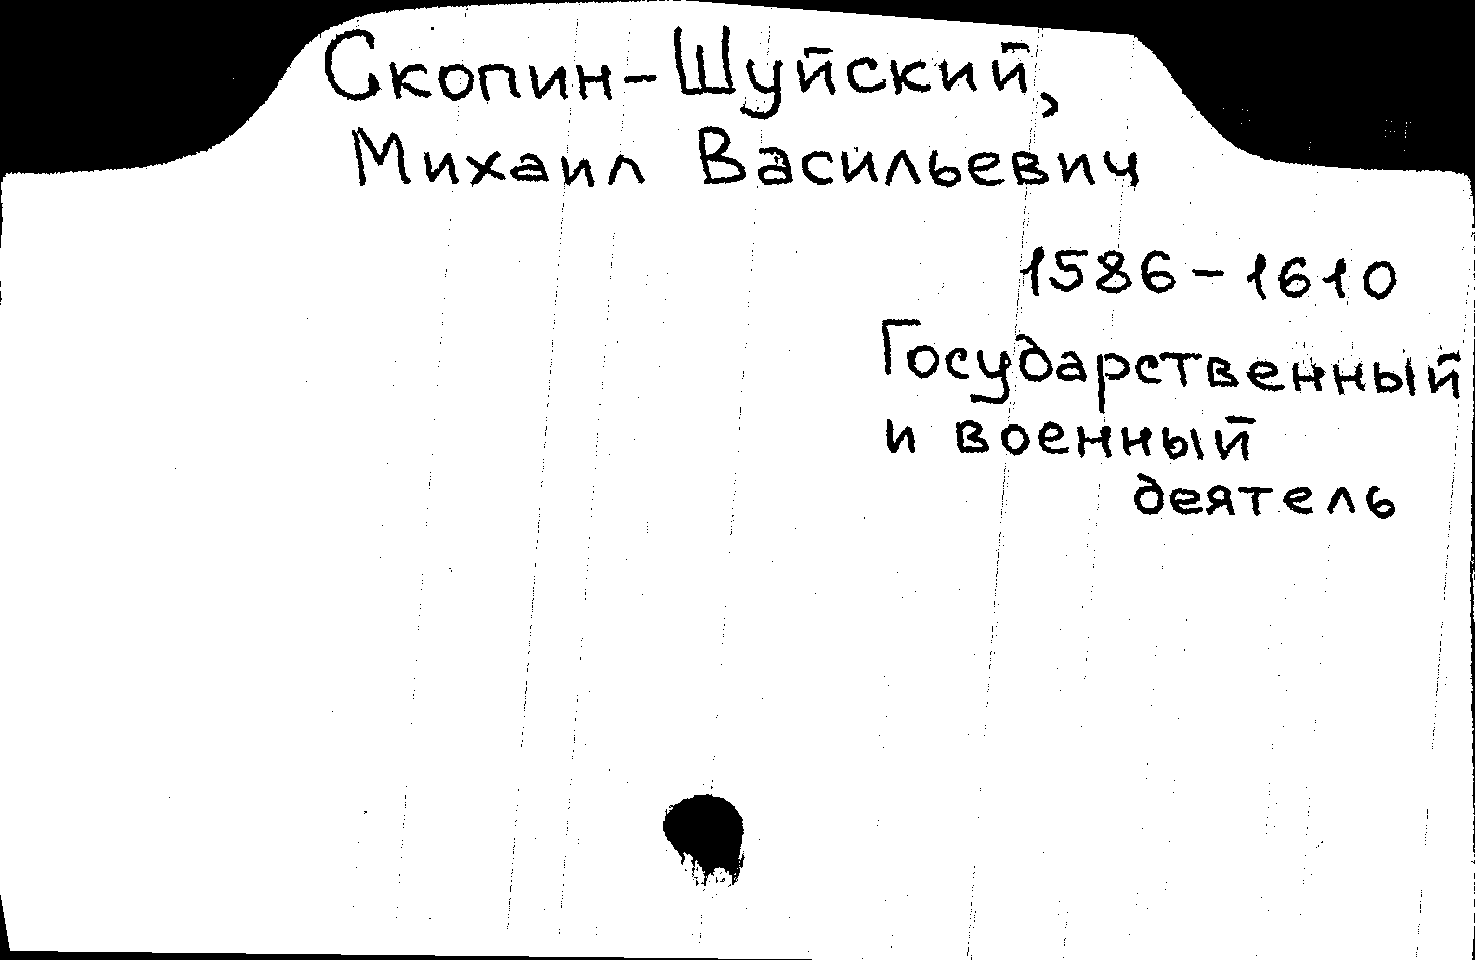 Скопин-Шуйский,
Михаил Васильевич
1586-1610
Государственный
и военный
деятель